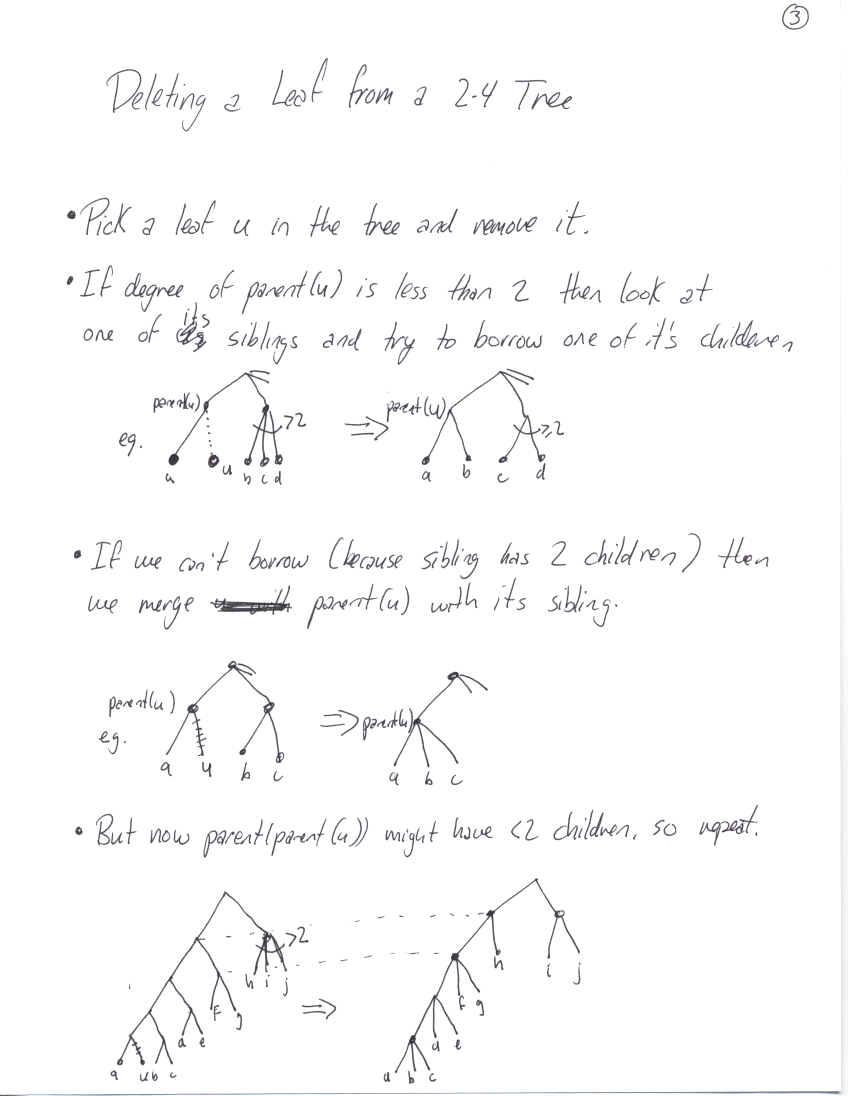 3
Deleting a Leaf from a 2-4 Tree
• Pick a leaf u in the tree and remove it.
• If degree of parent(u) is less than 2 then look at
one of its siblings and try to borrow one of it's childeren
eg.
parent(u)
>2
a u b c d
⇒
parent(u)
≥2
a b c d
• If we can't borrow (because sibling has 2 children) then
we merge parent(u) with its sibling.
parent(u)
eg.
a u b c
⇒
parent(u)
a b c
• But now parent(parent(u)) might have <2 children, so repeat.
>2
h i j
f g
d e
a u b c
⇒
h i j
f g
d e
a b c